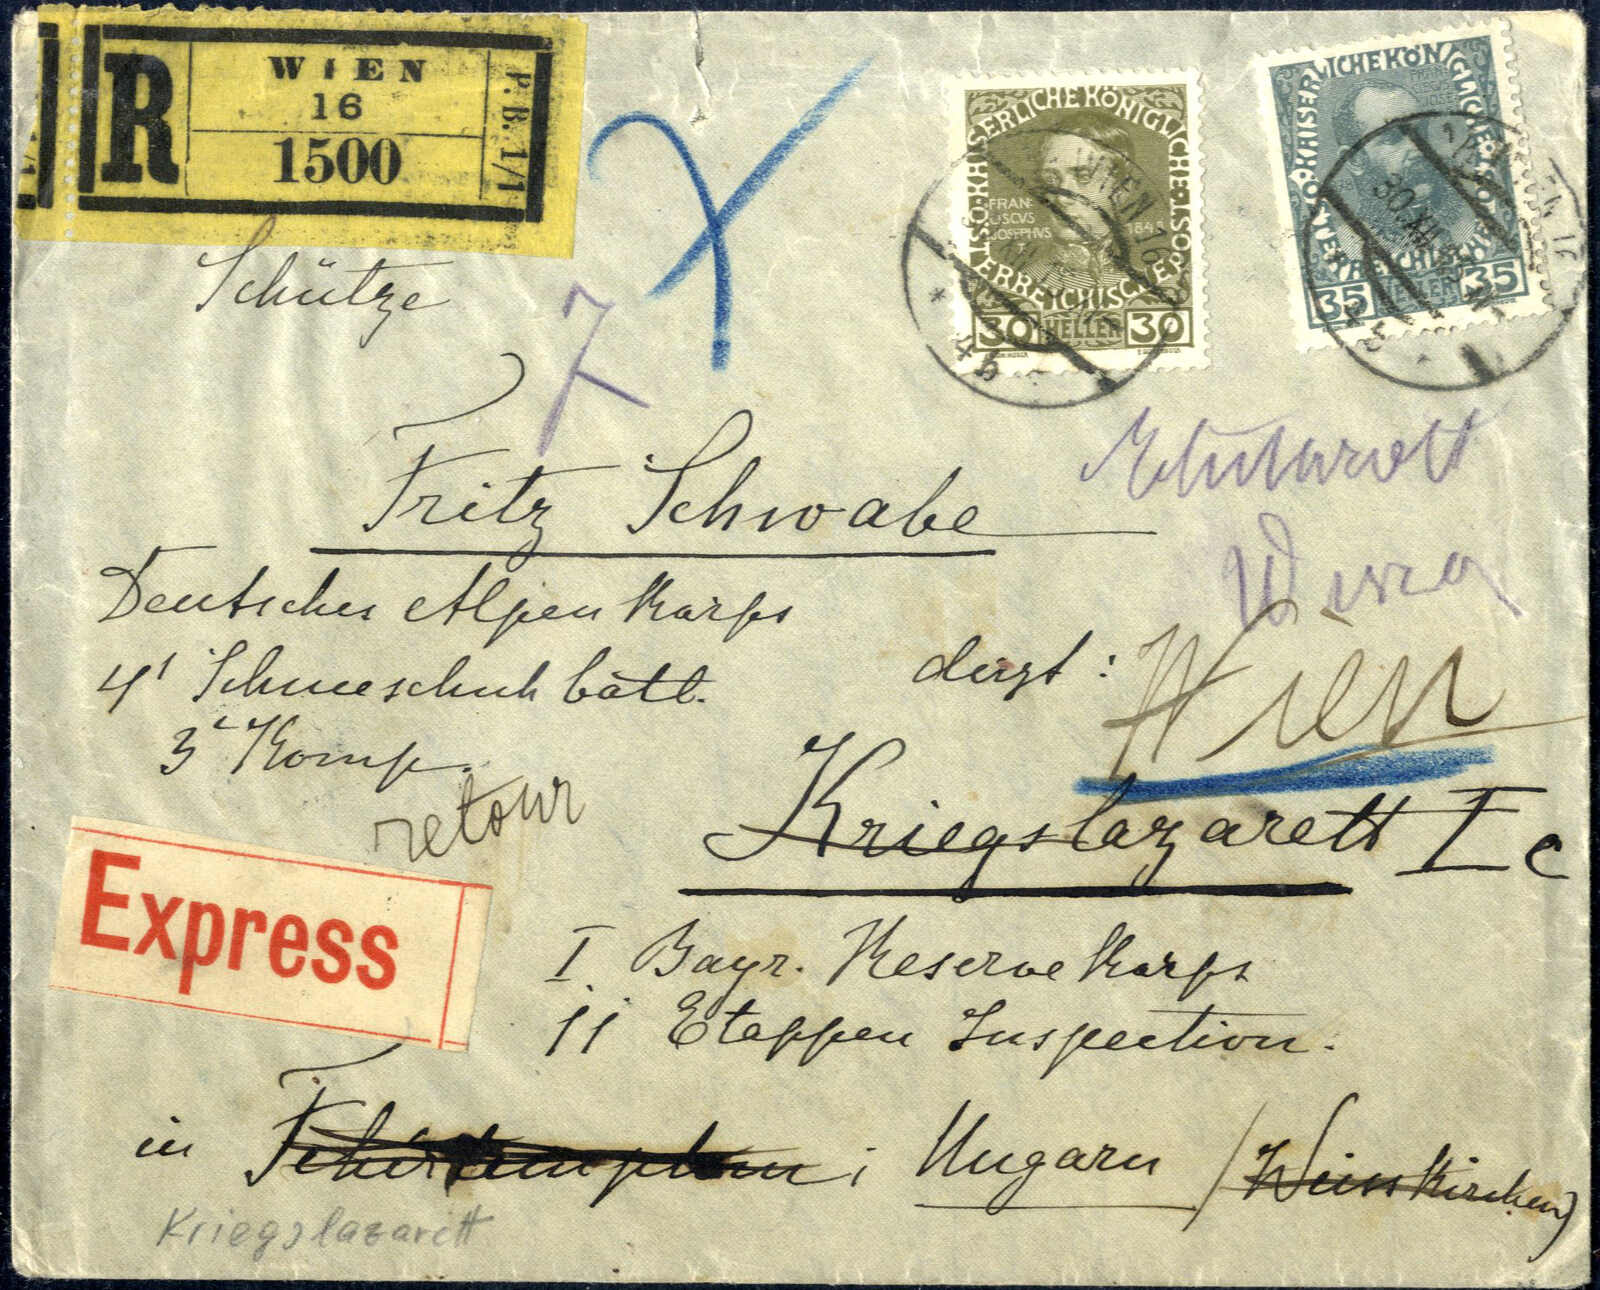 R WIEN
16
1500
P. B. 1/1
KAISERLICHE KÖNIGLICHE ÖSTERREICHISCHE POST
FRAN-
CISCVS
JOSEPHVS
30 HELLER 30
KAISERLICHE KÖNIGLICHE ÖSTERREICHISCHE POST
35 HELLER 35
WIEN 16
4b
30.XII.
Schütze
7
Fritz Schwabe
Deutsches Alpen Korps
4' Schneeschuh batl.
3' Komp.
retour
dirzt:
Wien
Kriegslazarett I c
Express
I Bayr. Reserve Korps
11 Etappen Inspection.
in
; Ungarn / (Weisskirchen)
Kriegslazarett